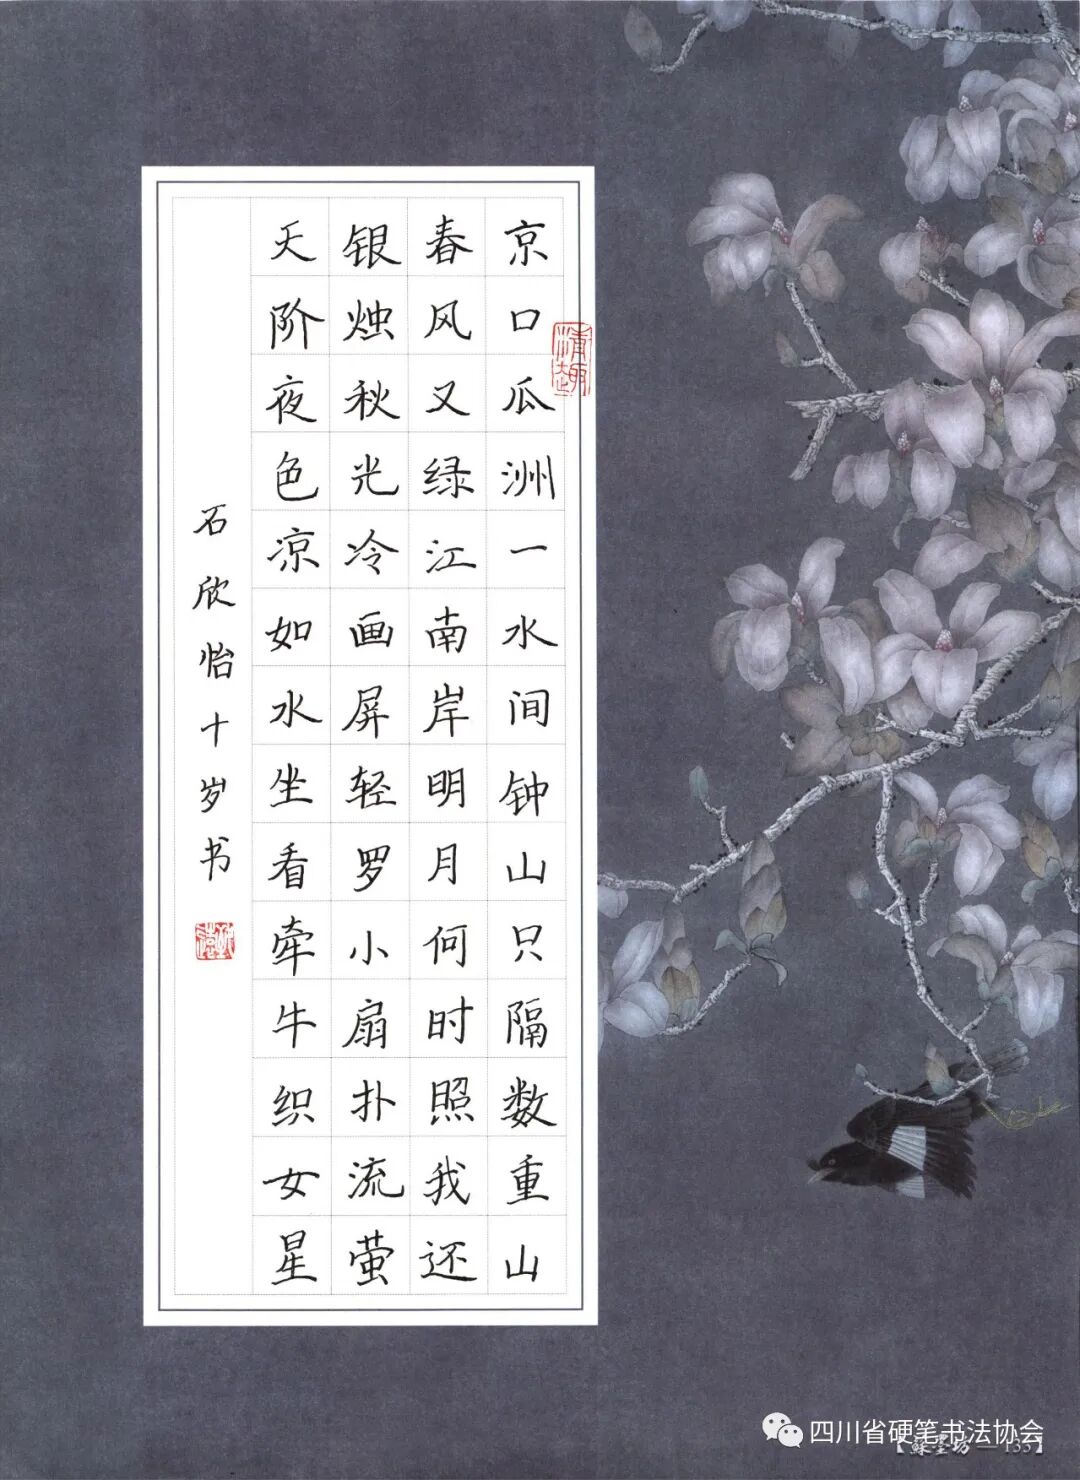 清趣
京口瓜洲一水间钟山只隔数重山
春风又绿江南岸明月何时照我还
银烛秋光冷画屏轻罗小扇扑流萤
天阶夜色凉如水坐看牵牛织女星
石欣怡十岁书
四川省硬笔书法协会
【蘇墨坊